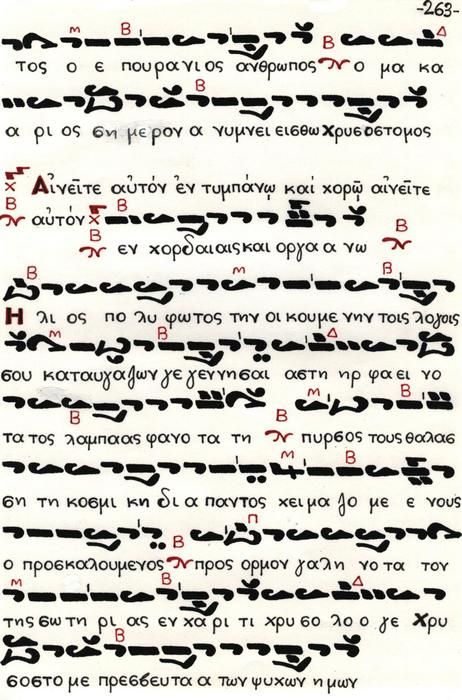 -263-
Μ Β Β Δ
τος ο ε πουρανιος ανθρωπος ο μα κα
Β
α ρι ος ση μερον α νυμνει εισθω Χρυσοστομος
Αἰνεῖτε αὐτόν ἐν τυμπάνῳ καί χορῷ αἰνεῖτε
Β Β
αὐτόν
Β Β
εν χορδαιαις και οργα α νω
Β Μ Β
Η λι ος πο λυ φωτος την οι κουμε νην τοις λογοις
Μ Β Δ
σου καταυγαζων γε γεννησαι αστη ηρ φα ει νο
Β Β Μ Β
τα τος λαμπαας φανο τα τη πυρσος τους θαλασ
Μ Β
ση τη κοσμι κη δι α παντος χειμα ζο με ε νους
Β Π
ο προσκαλουμενος προς ορμον γαλη νο τα τον
Μ Β Δ
της σω τη ρι ας εν χα ρι τι χρυ σο λο ο γε Χρυ
Β
σοστο με πρεσβευτα α των ψυχων ημων